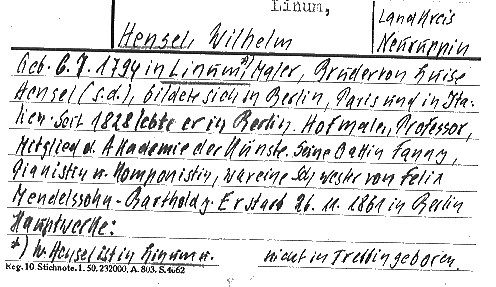 Linum,
Landkreis
Hensel, Wilhelm
Neuruppin
Geb. 6. 7. 1794 in Linum,*) Maler, Bruder von Luise
Hensel (s.d.), bildete sich in Berlin, Paris und in Ita-
lien. Seit 1828 lebte er in Berlin. Hofmaler, Professor,
Mitglied d. Akademie der Künste. Seine Gattin Fanny,
Pianistin u. Komponistin, war eine Schwester von Felix
Mendelssohn-Bartholdy. Er starb 26. 11. 1861 in Berlin
Hauptwerke:
*) W. Hensel ist in Linum u. nicht in Trebbin geboren.
Reg. 10. Stichnote. 1. 50, 232000, A. 803. S. 4662